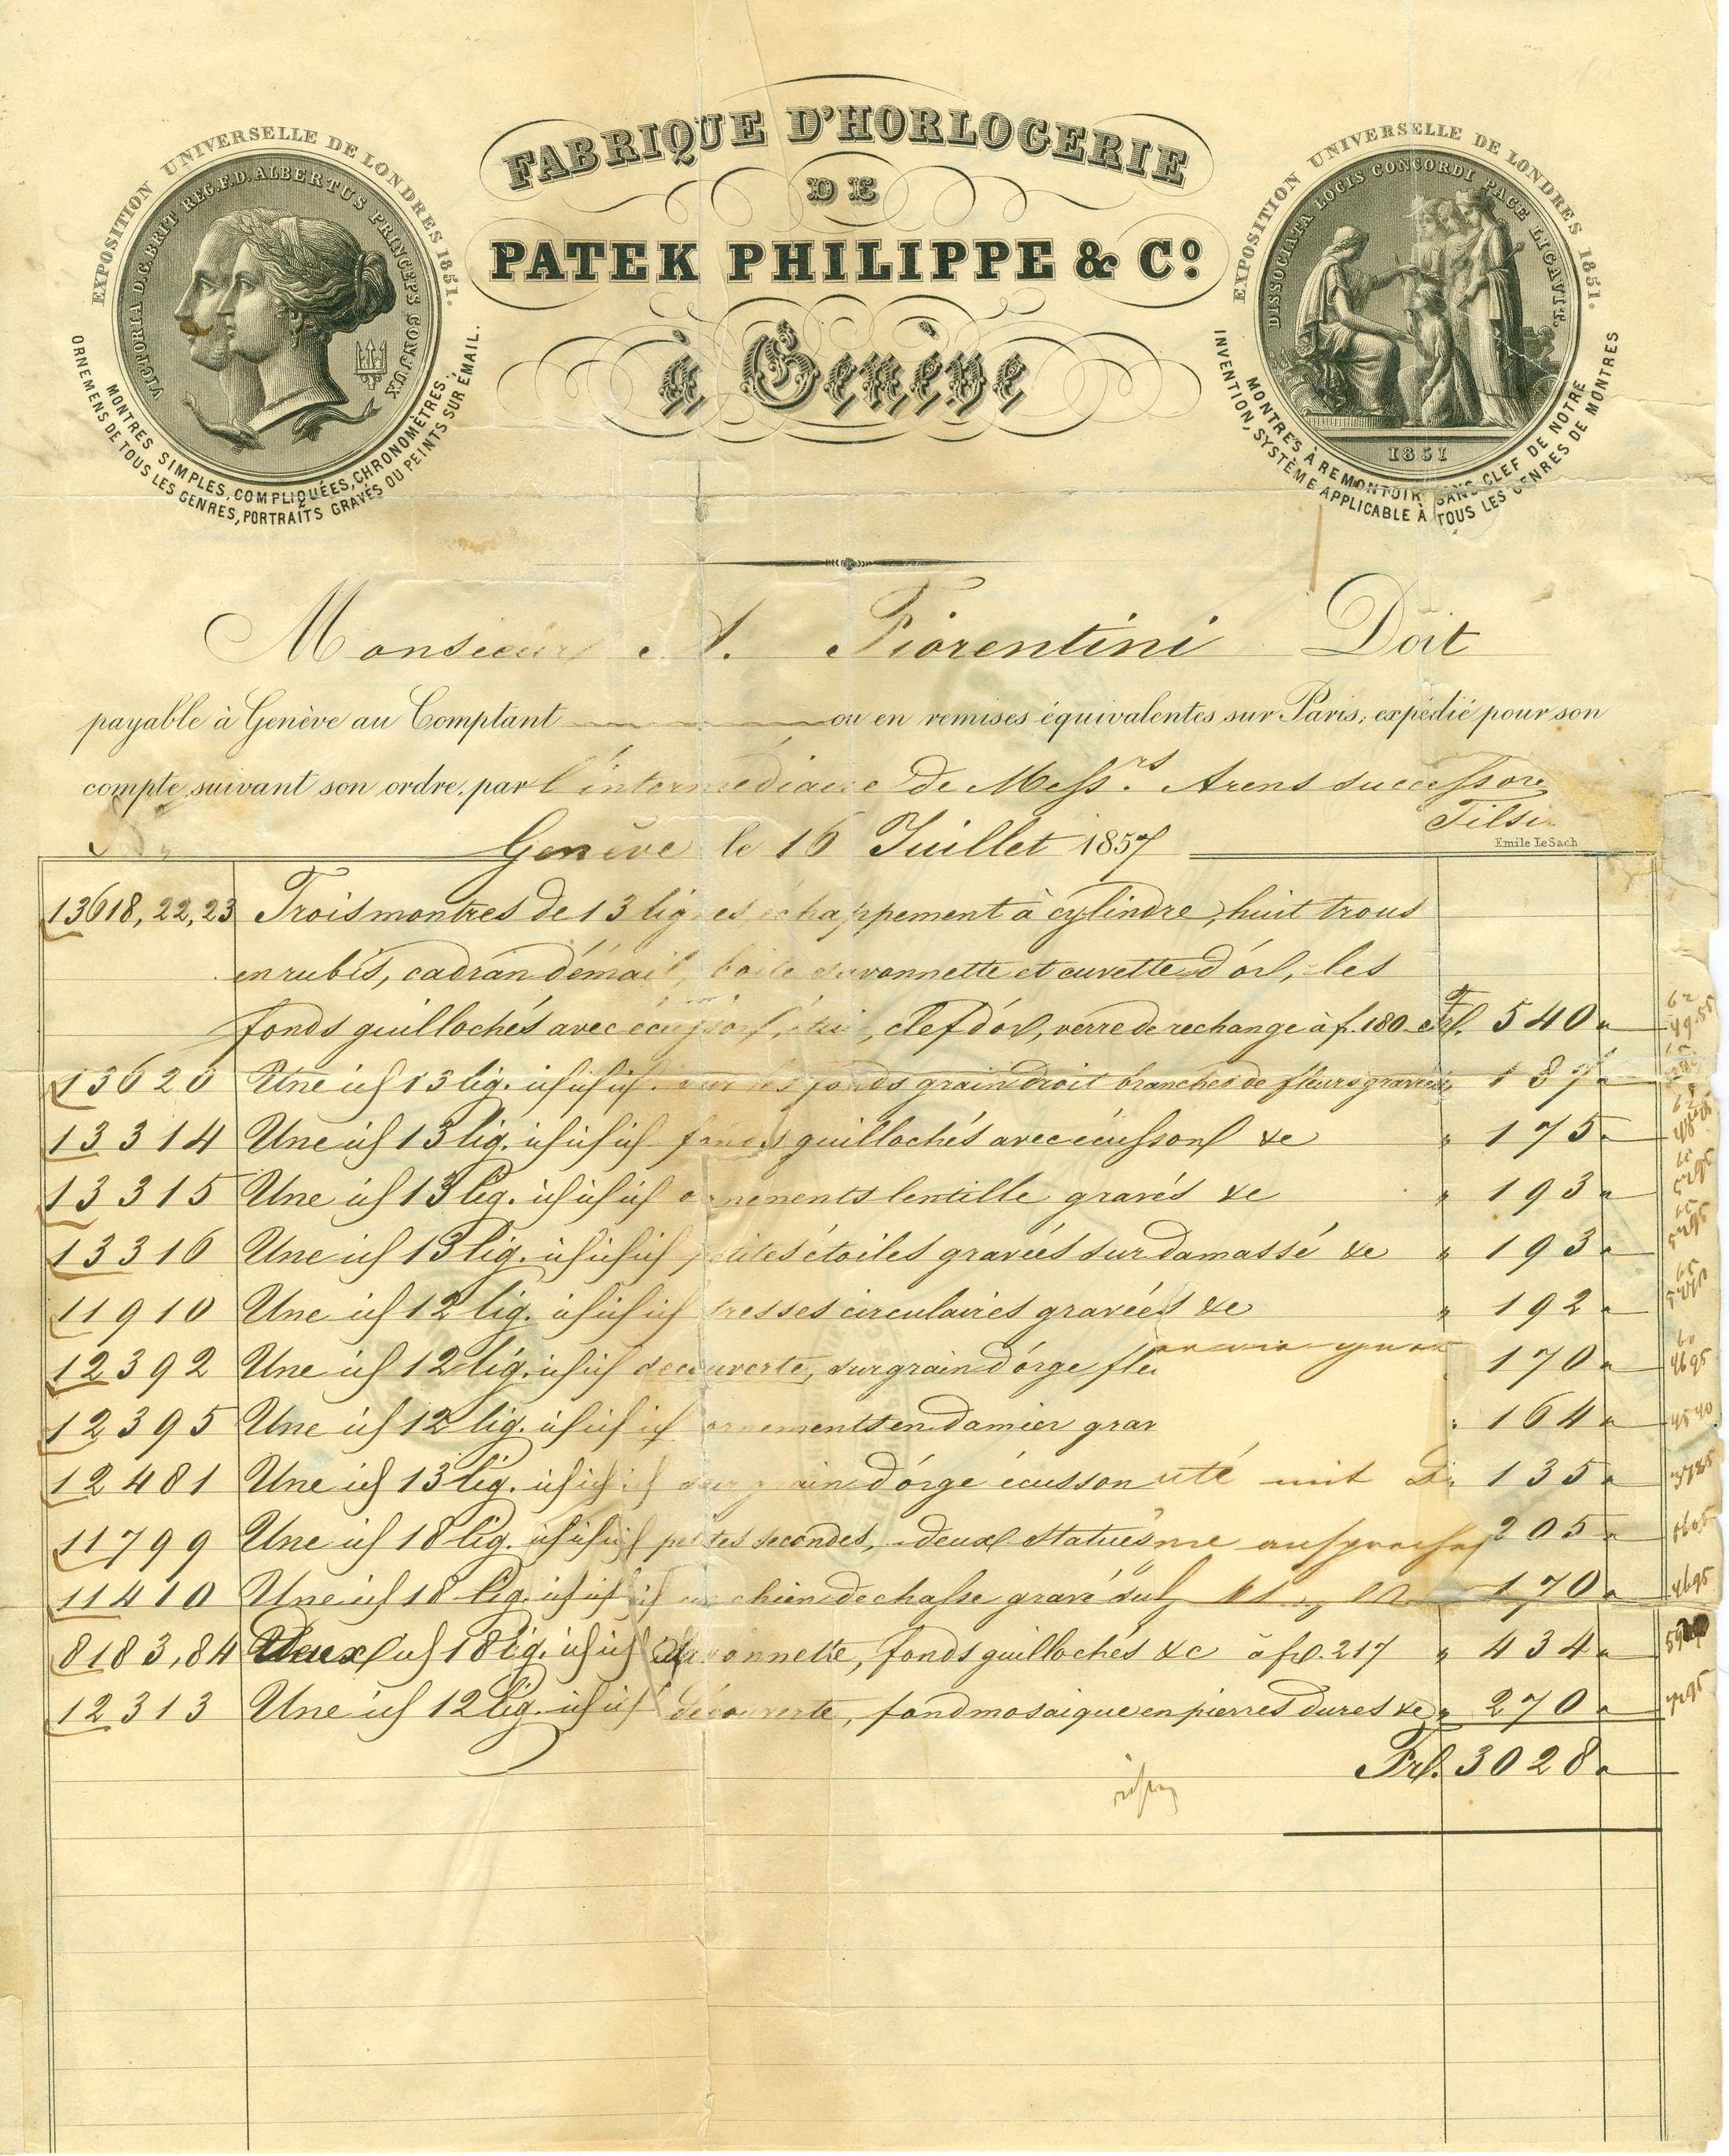 FABRIQUE D'HORLOGERIE
DE
PATEK PHILIPPE & Cº
à Genève
EXPOSITION UNIVERSELLE DE LONDRES 1851.
VICTORIA D.G. BRIT REG. F.D. ALBERTUS PRINCEPS CONJUX
MONTRES SIMPLES, COMPLIQUÉES, CHRONOMÈTRES.
ORNEMENS DE TOUS LES GENRES, PORTRAITS GRAVÉS OU PEINTS SUR ÉMAIL.
EXPOSITION UNIVERSELLE DE LONDRES 1851.
DISSOCIATA LOCIS CONCORDI PACE LIGAVIT.
1851
MONTRES À REMONTOIR SANS CLEF DE NOTRE
INVENTION, SYSTÈME APPLICABLE À TOUS LES GENRES DE MONTRES
Monsieur A. Fiorentini Doit
payable à Genève au Comptant ou en remises équivalentes sur Paris, expédié pour son
compte suivant son ordre, par l'intermédiaire de Messrs. Arens successore
Tilsi
Genève le 16 Juillet 1857
Emile LeSach
13618, 22, 23 Trois montres de 13 lignes échappement à cylindre, huit trous
en rubis, cadran d'émail, boite savonnette et cuvette d'or, les
fonds guillochés avec écusson, étui, clef d'or, verre de rechange à f. 180 Fr. 540 "
13620 Une id 13 lig. id id id sur les fonds grain droit branches de fleurs gravées " 187 "
13314 Une id 13 lig. id id id fonds guillochés avec écusson &c " 175 "
13315 Une id 13 lig. id id id ornements lentille gravés &c " 193 "
13316 Une id 13 lig. id id id petites étoiles gravées sur damassé &c " 193 "
11910 Une id 12 lig. id id id tresses circulaires gravées &c " 192 "
12392 Une id 12 lig. id id découverte, sur grain d'orge fleu 170 "
12395 Une id 12 lig. id id id ornements en damier grav " 164 "
12481 Une id 13 lig. id id id sur grain d'orge écusson 135 "
11799 Une id 18 lig. id id id petites secondes, deux statues 205 "
11410 Une id 18 lig. id id id un chien de chasse gravé sur 170 "
8183, 84 Deux id 18 lig. id id savonnette, fonds guillochés &c à f. 217 " 434 "
12313 Une id 12 lig. id id découverte, fond mosaique en pierres dures &c " 270 "
Fr. 3028 "